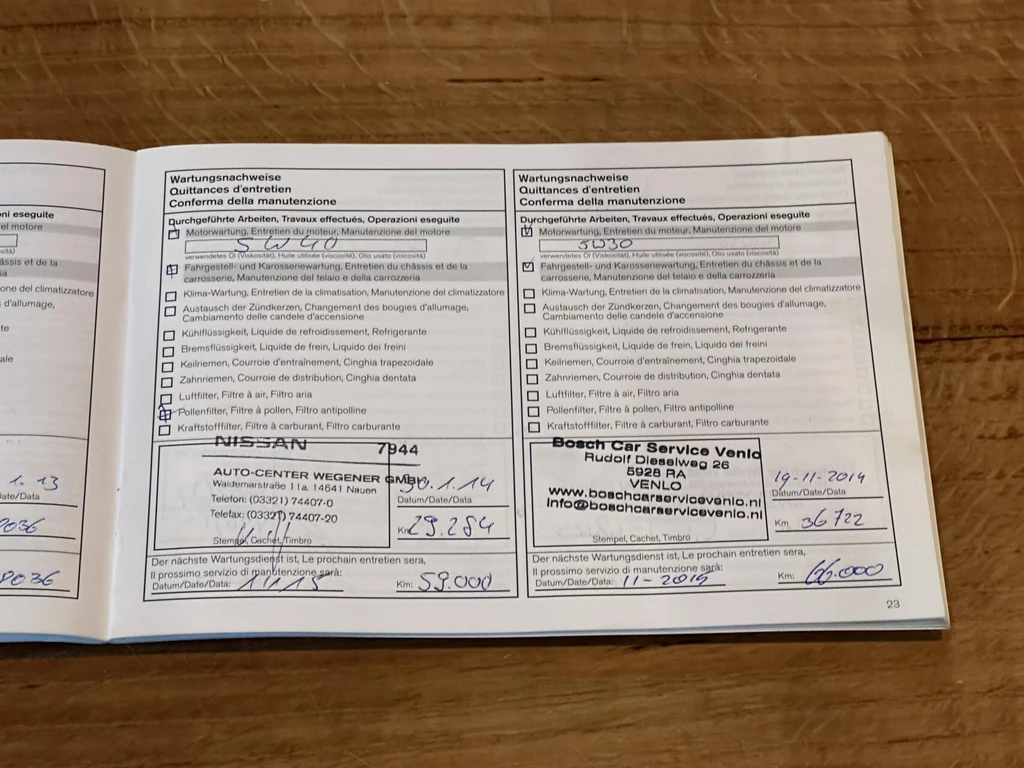 ni eseguite
el motore
osità)
ässis et de la
ia
one del climatizzatore
s d'allumage,
te
ale
1. 13
Date/Data
2036
2036
Wartungsnachweise
Quittances d'entretien
Conferma della manutenzione
Durchgeführte Arbeiten, Travaux effectués, Operazioni eseguite
Motorwartung, Entretien du moteur, Manutenzione del motore
5W40
verwendetes Öl (Viskosität), Huile utilisée (viscosité), Olio usato (viscosità)
Fahrgestell- und Karosseriewartung, Entretien du châssis et de la
carrosserie, Manutenzione del telaio e della carrozzeria
Klima-Wartung, Entretien de la climatisation, Manutenzione del climatizzatore
Austausch der Zündkerzen, Changement des bougies d'allumage,
Cambiamento delle candele d'accensione
Kühlflüssigkeit, Liquide de refroidissement, Refrigerante
Bremsflüssigkeit, Liquide de frein, Liquido dei freini
Keilriemen, Courroie d'entraînement, Cinghia trapezoidale
Zahnriemen, Courroie de distribution, Cinghia dentata
Luftfilter, Filtre à air, Filtro aria
Pollenfilter, Filtre à pollen, Filtro antipolline
Kraftstofffilter, Filtre à carburant, Filtro carburante
NISSAN 7944
AUTO-CENTER WEGENER GMBH
Waldemarstraße 11a, 14641 Nauen
Telefon: (03321) 74407-0
Telefax: (03321) 74407-20
Stempel, Cachet, Timbro
30.1.14
Datum/Date/Data
Km 29.284
Der nächste Wartungsdienst ist, Le prochain entretien sera,
Il prossimo servizio di manutenzione sarà:
Datum/Date/Data: 1/1/15 Km: 59.000
Wartungsnachweise
Quittances d'entretien
Conferma della manutenzione
Durchgeführte Arbeiten, Travaux effectués, Operazioni eseguite
Motorwartung, Entretien du moteur, Manutenzione del motore
5W30
verwendetes Öl (Viskosität), Huile utilisée (viscosité), Olio usato (viscosità)
Fahrgestell- und Karosseriewartung, Entretien du châssis et de la
carrosserie, Manutenzione del telaio e della carrozzeria
Klima-Wartung, Entretien de la climatisation, Manutenzione del climatizzatore
Austausch der Zündkerzen, Changement des bougies d'allumage,
Cambiamento delle candele d'accensione
Kühlflüssigkeit, Liquide de refroidissement, Refrigerante
Bremsflüssigkeit, Liquide de frein, Liquido dei freini
Keilriemen, Courroie d'entraînement, Cinghia trapezoidale
Zahnriemen, Courroie de distribution, Cinghia dentata
Luftfilter, Filtre à air, Filtro aria
Pollenfilter, Filtre à pollen, Filtro antipolline
Kraftstofffilter, Filtre à carburant, Filtro carburante
Bosch Car Service Venlo
Rudolf Dieselweg 26
5928 RA
VENLO
www.boschcarservicevenlo.nl
info@boschcarservicevenlo.nl
Stempel, Cachet, Timbro
19-11-2014
Datum/Date/Data
Km 36722
Der nächste Wartungsdienst ist, Le prochain entretien sera,
Il prossimo servizio di manutenzione sarà:
Datum/Date/Data: 11-2015 Km: 66.000
23